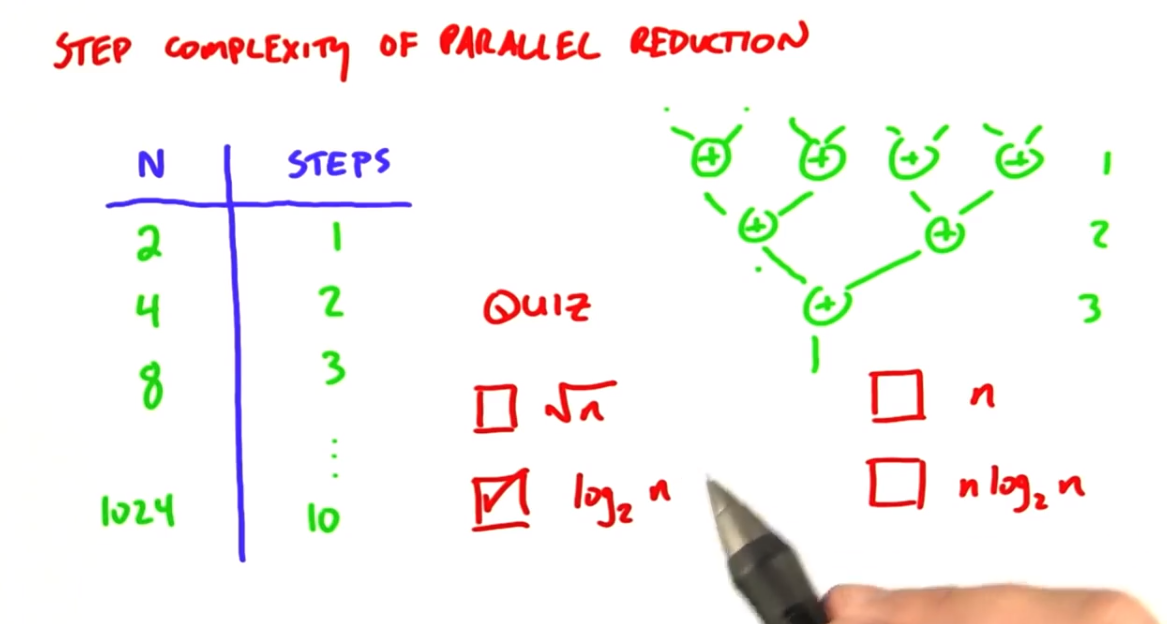 STEP COMPLEXITY OF PARALLEL REDUCTION
N STEPS
2 1
4 2
8 3
⋮
1024 10
+ + + + 1
+ + 2
+ 3
QUIZ
√n
n
✓ log₂ n
n log₂ n